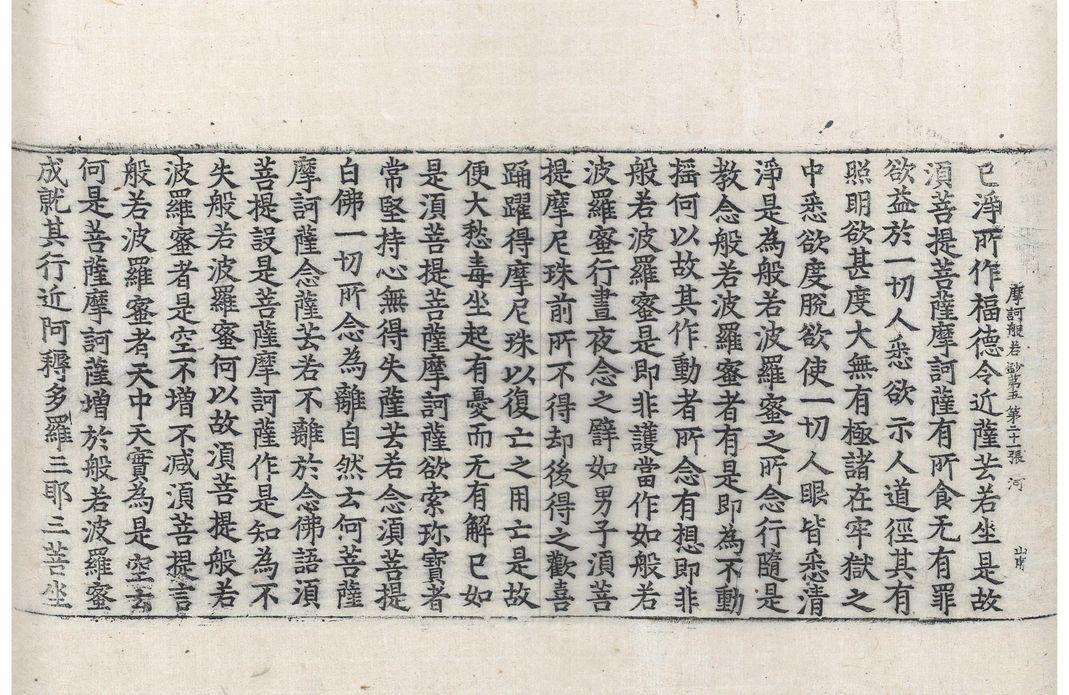 摩訶般若鈔第五 第二十一張 河
已淨所作福德令近薩芸若坐是故
湏菩提菩薩摩訶薩有所食无有罪
欲益於一切人悉欲示人道徑其有
照明欲甚度大無有極諸在牢獄之
中悉欲度脫欲使一切人眼皆悉清
淨是為般若波羅蜜之所念行隨是
教念般若波羅蜜者有是即為不動
摇何以故其作動者所念有想即非
般若波羅蜜是即非護當作如般若
波羅蜜行晝夜念之譬如男子湏菩
提摩尼珠前所不得却後得之歡喜
踊躍得摩尼珠以復亡之用亡是故
便大愁毒坐起有憂而无有解已如
是湏菩提菩薩摩訶薩欲索珎寶者
常堅持心無得失薩芸若念湏菩提
白佛一切所念為離自然云何菩薩
摩訶薩念薩芸若不離於念佛語湏
菩提設是菩薩摩訶薩作是知為不
失般若波羅蜜何以故湏菩提般若
波羅蜜者是空不增不减湏菩提言
般若波羅蜜者天中天實為是空云
何是菩薩摩訶薩増於般若波羅蜜
成就其行近阿耨多羅三耶三菩坐